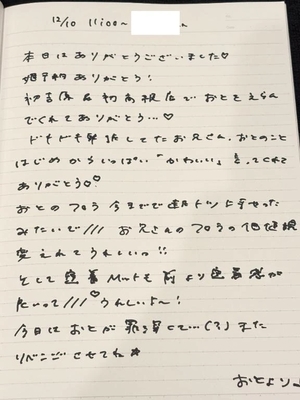 12/10 11:00~
本日はありがとうございました♡
ありがとう!
初吉原&初高級店でおとをえらん
でくれてありがとう…♡
ドキドキ してたお兄さん、おとのこと
はじめからいっぱい「かわいい」と言ってくれて
ありがとう♡
おとのフェラ 今までで
みたいで/// お兄さんのフェラの価値観
変えれてうれしいっ!!
そして密着Mットも 前より密着感が
たいって///♡うれしいよ〜!
今日はおとが … (?) また
リベンジさせてね☆
おとより